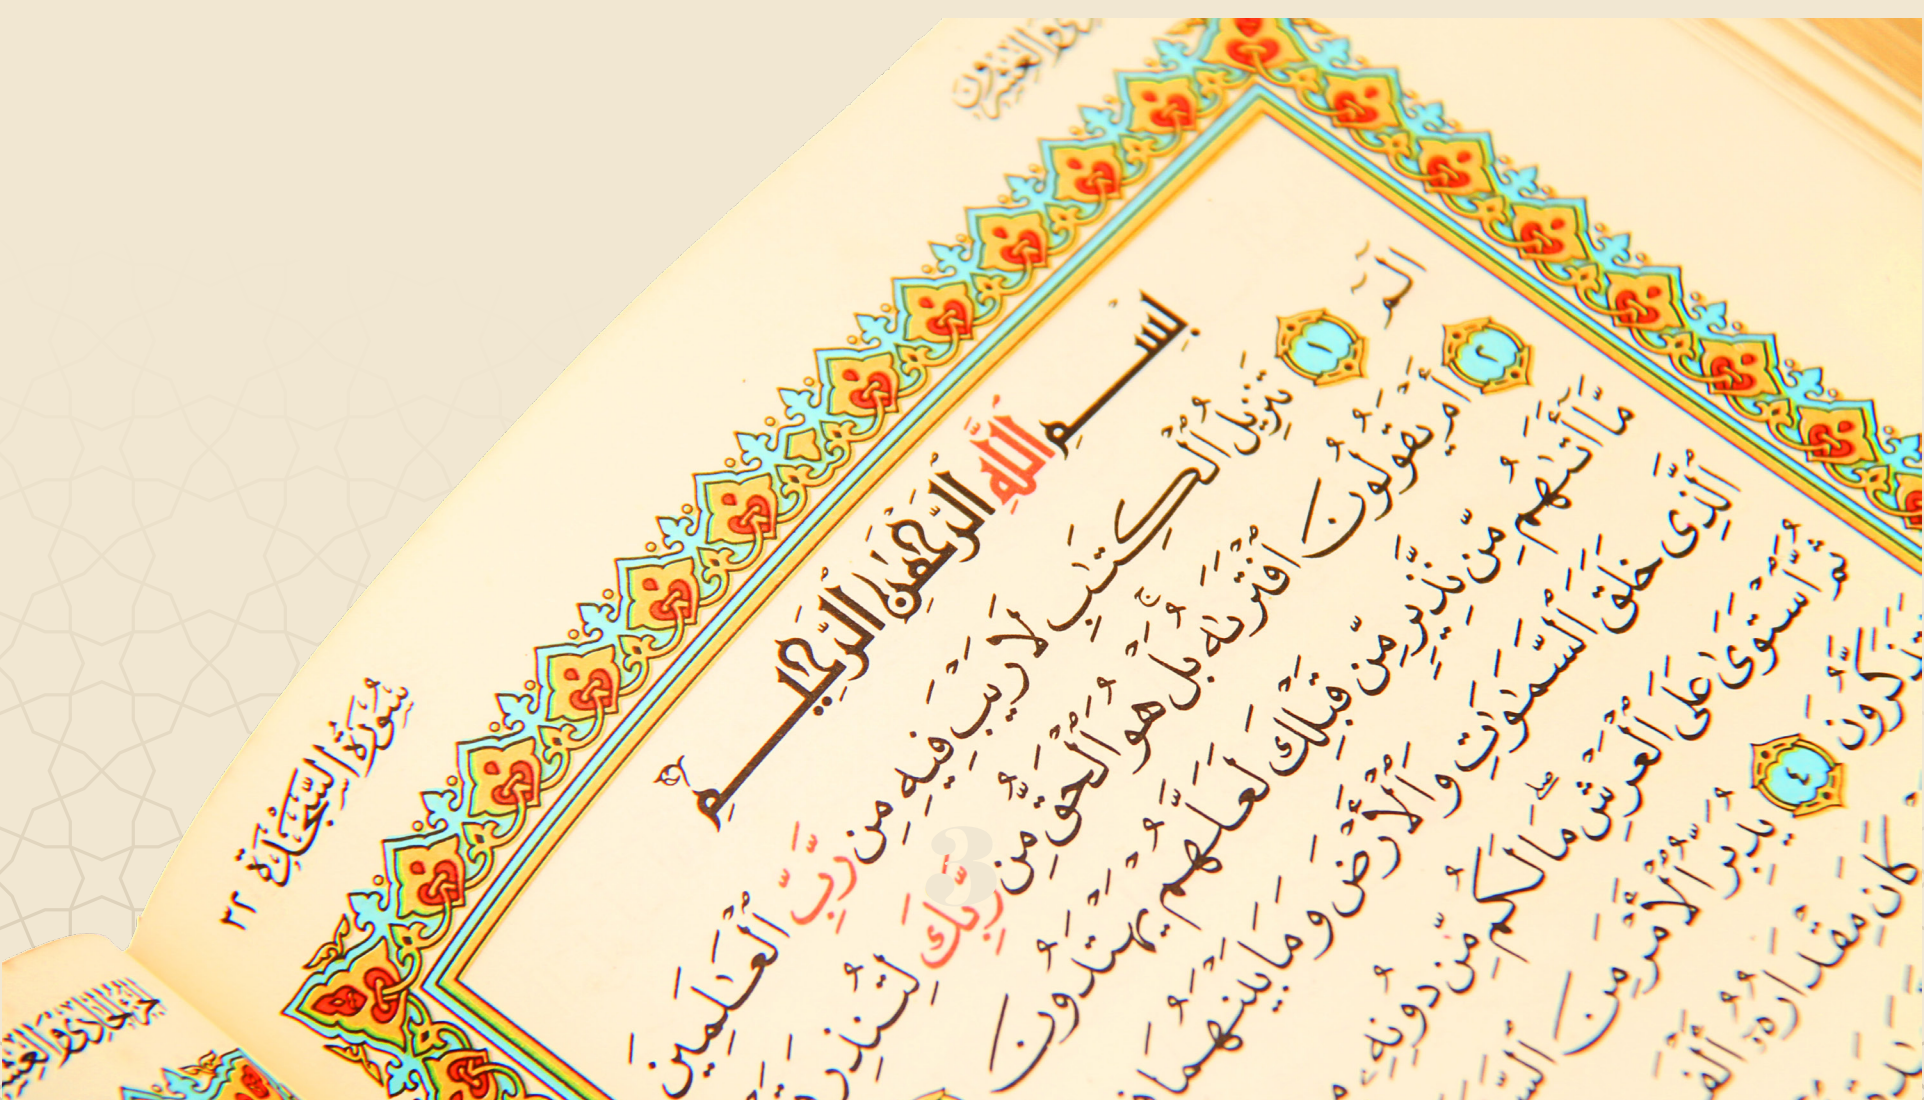 والعشرون
سُورَةُ السَّجْدَةِ ٣٢
بِسْمِ اللَّهِ الرَّحْمٰنِ الرَّحِيمِ
الٓمٓ ١ تَنزِيلُ ٱلْكِتَٰبِ لَا رَيْبَ فِيهِ مِن رَّبِّ ٱلْعَٰلَمِينَ
٢ أَمْ يَقُولُونَ ٱفْتَرَىٰهُ بَلْ هُوَ ٱلْحَقُّ مِن رَّبِّكَ لِتُنذِرَ
مَّآ أَتَىٰهُم مِّن نَّذِيرٍ مِّن قَبْلِكَ لَعَلَّهُمْ يَهْتَدُونَ
ٱلَّذِى خَلَقَ ٱلسَّمَٰوَٰتِ وَٱلْأَرْضَ وَمَا بَيْنَهُمَا
ثُمَّ ٱسْتَوَىٰ عَلَى ٱلْعَرْشِ ۖ مَا لَكُم مِّن دُونِهِۦ
تَتَذَكَّرُونَ ٤ يُدَبِّرُ ٱلْأَمْرَ مِنَ
كَانَ مِقْدَارُهُۥٓ
3